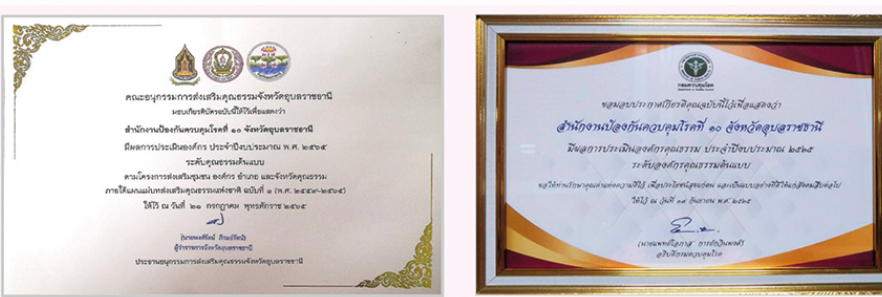 คณะอนุกรรมการส่งเสริมคุณธรรมจังหวัดอุบลราชธานี
มอบเกียรติบัตรฉบับนี้ให้ไว้เพื่อแสดงว่า
สำนักงานป้องกันควบคุมโรคที่ ๑๐ จังหวัดอุบลราชธานี
มีผลการประเมินองค์กร ประจำปีงบประมาณ พ.ศ. ๒๕๖๕
ระดับคุณธรรมต้นแบบ
ตามโครงการส่งเสริมชุมชน องค์กร อำเภอ และจังหวัดคุณธรรม
ภายใต้แผนแม่บทส่งเสริมคุณธรรมแห่งชาติ ฉบับที่ ๑ (พ.ศ. ๒๕๕๙-๒๕๖๕)
ให้ไว้ ณ วันที่ ๒๑ กรกฎาคม พุทธศักราช ๒๕๖๕
ผู้ว่าราชการจังหวัดอุบลราชธานี
ประธานอนุกรรมการส่งเสริมคุณธรรมจังหวัดอุบลราชธานี
กรมควบคุมโรค
ขอมอบประกาศเกียรติคุณฉบับนี้ไว้เพื่อแสดงว่า
สำนักงานป้องกันควบคุมโรคที่ ๑๐ จังหวัดอุบลราชธานี
มีผลการประเมินองค์กรคุณธรรม ประจำปีงบประมาณ ๒๕๖๕
ระดับองค์กรคุณธรรมต้นแบบ
ขอให้ท่านรักษาคุณค่าแห่งความดีไว้ เพื่อประโยชน์สุขแก่ตน และเป็นแบบอย่างที่ดีให้แก่สังคมสืบต่อไป
ให้ไว้ ณ วันที่ กันยายน พ.ศ. ๒๕๖๕
(นายแพทย์โอภาส การย์กวินพงศ์)
อธิบดีกรมควบคุมโรค